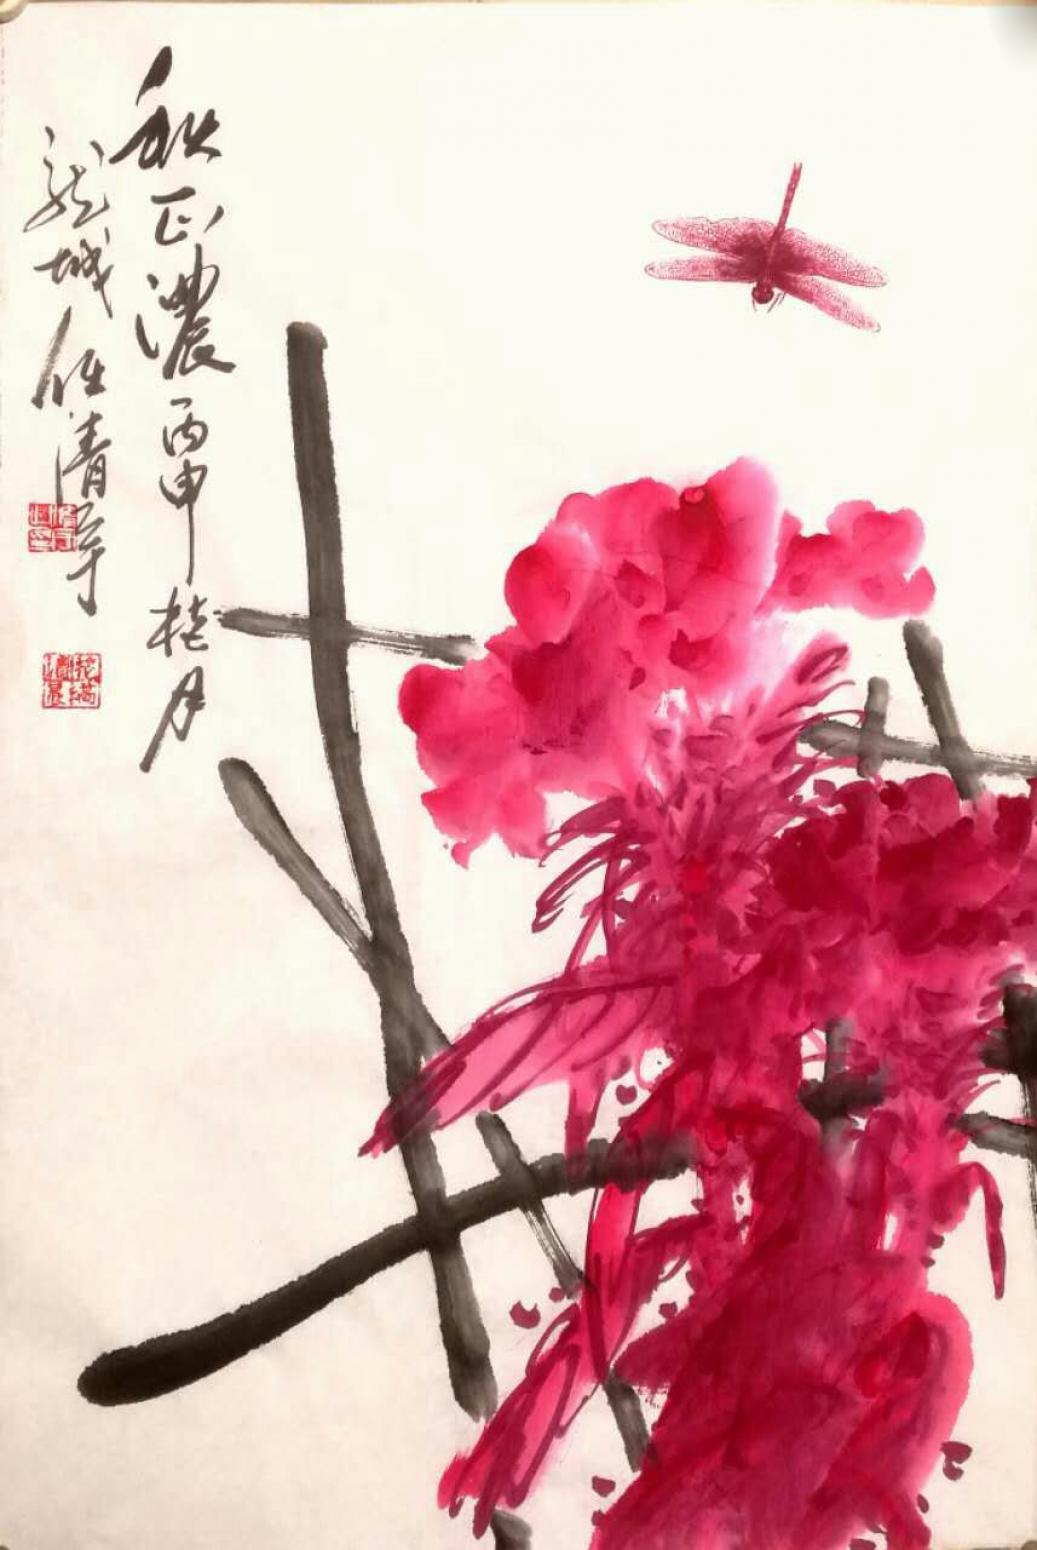 秋正濃丙申桂月
龍城任清